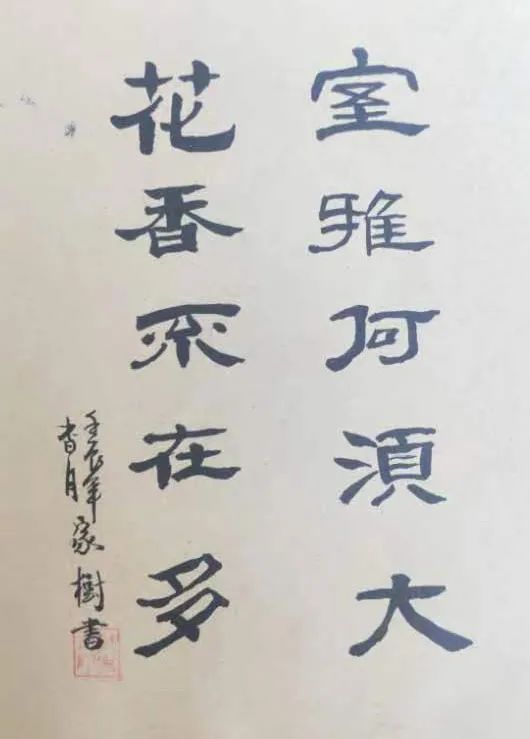 室雅何須大
花香不在多
壬辰年
杏月家樹書